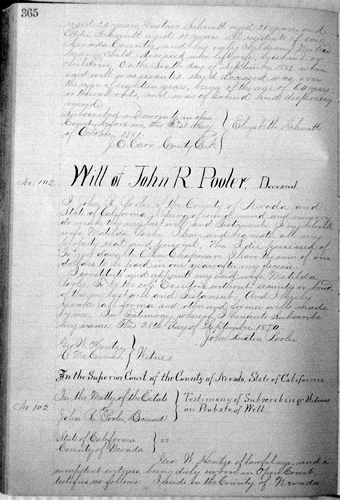 365
aged 24 years, Gustave Schmitt aged 21 years, and
Ottilie Schmitt aged 18 years all residents of said
Nevada County, and they only children. No
children. On the day of September 1881, when
said will was executed, said deceased was over
the age of eighteen years, being of the age of 64 years
or thereabouts, and was of sound and disposing
mind.
Subscribed and sworn to in open
Court before me, this 31st day } Elizabeth Schmitt
of October 1881.
J. E. Carr, County Clerk
No. 102 Will of John R. Pooler, Deceased
I John R. Pooler of the County of Nevada and
State of California, being of sound mind and memory do
make this my last will and Testament. To my beloved
wife Matilda Pooler I leave and bequeath all
property real and personal, that I die possessed of
To my daughter Ellen Chapman I leave the sum of one
dollar to be paid in one year after my decease.
I constitute and appoint my said wife Matilda
Pooler to be the sole Executrix without security or bond
of this my last will and Testament. And I hereby
revoke all former and other wills, former or otherwise made
by me. In testimony whereof I hereunto subscribe
my name this 28th day of September 1870.
John Pooler
Geo. W. Hentze
C. McCormick } Witness
In the Superior Court of the County of Nevada, State of California
No. 102
In the Matter of the Estate } Testimony of Subscribing Witness
of } on Probate of Will.
John R. Pooler, Deceased
State of California } ss
County of Nevada
Geo. W. Hentze of lawful age, and a
competent witness being duly sworn in Open Court,
testifies as follows: I reside in the County of Nevada